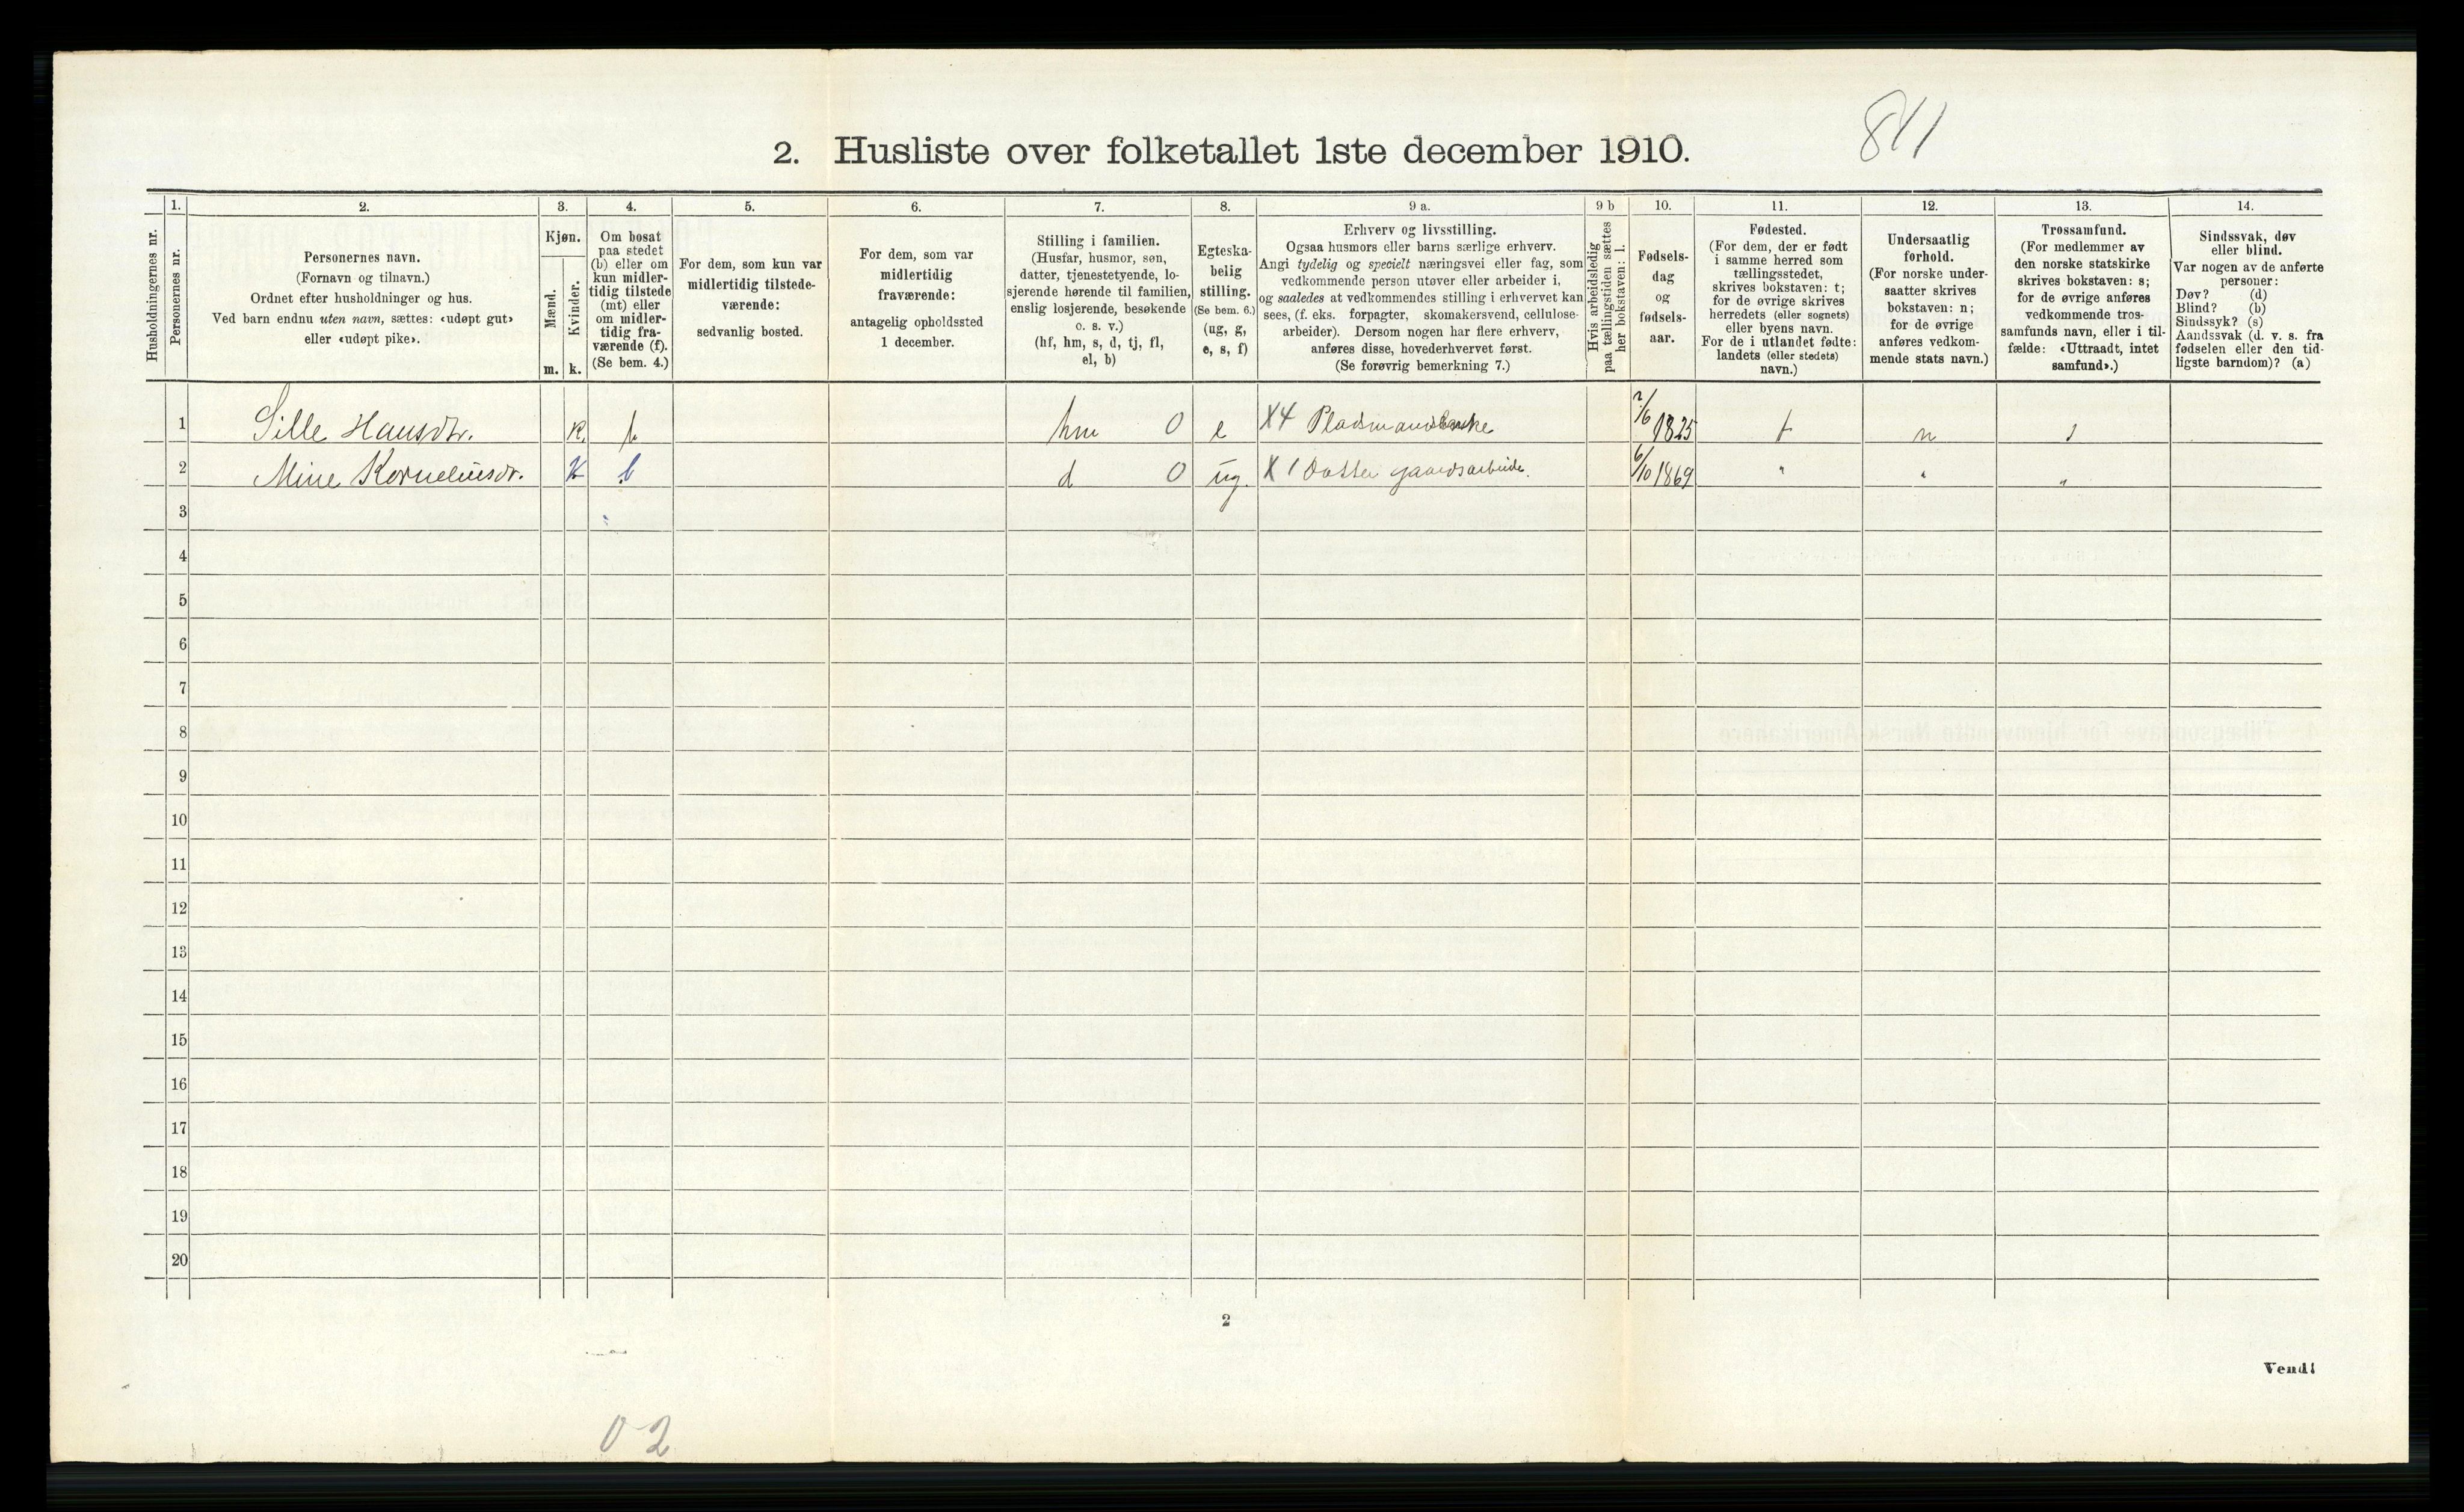 811
2. Husliste over folketallet 1ste december 1910.
Husholdningernes nr.
1.
Personernes nr.
2.
Personernes navn.
(Fornavn og tilnavn.)
Ordnet efter husholdninger og hus.
Ved barn endnu uten navn, sættes: «udøpt gut»
eller «udøpt pike».
3.
Kjøn.
Mænd.
Kvinder.
m. k.
4.
Om bosat
paa stedet
(b) eller om
kun midler-
tidig tilstede
(mt) eller
om midler-
tidig fra-
værende (f).
(Se bem. 4.)
5.
For dem, som kun var
midlertidig tilstede-
værende:
sedvanlig bosted.
6.
For dem, som var
midlertidig
fraværende:
antagelig opholdssted
1 december.
7.
Stilling i familien.
(Husfar, husmor, søn,
datter, tjenestetyende, lo-
sjerende hørende til familien,
enslig losjerende, besøkende
o. s. v.)
(hf, hm, s, d, tj, fl,
el, b)
8.
Egteska-
belig
stilling.
(Se bem. 6.)
(ug, g,
e, s, f)
9 a.
Erhverv og livsstilling.
Ogsaa husmors eller barns særlige erhverv.
Angi tydelig og specielt næringsvei eller fag, som
vedkommende person utøver eller arbeider i,
og saaledes at vedkommendes stilling i erhvervet kan
sees, (f. eks. forpagter, skomakersvend, cellulose-
arbeider). Dersom nogen har flere erhverv,
anføres disse, hovederhvervet først.
(Se forøvrig bemerkning 7.)
9 b
Hvis arbeidsledig
paa tællingstiden sættes
her bokstaven: l.
10.
Fødsels-
dag
og
fødsels-
aar.
11.
Fødested.
(For dem, der er født
i samme herred som
tællingsstedet,
skrives bokstaven: t;
for de øvrige skrives
herredets (eller sognets)
eller byens navn.
For de i utlandet fødte:
landets (eller stedets)
navn.)
12.
Undersaatlig
forhold.
(For norske under-
saatter skrives
bokstaven: n;
for de øvrige
anføres vedkom-
mende stats navn.)
13.
Trossamfund.
(For medlemmer av
den norske statskirke
skrives bokstaven: s;
for de øvrige anføres
vedkommende tros-
samfunds navn, eller i til-
fælde: «Uttraadt, intet
samfund».)
14.
Sindssvak, døv
eller blind.
Var nogen av de anførte
personer:
Døv? (d)
Blind? (b)
Sindssyk? (s)
Aandssvak (d. v. s. fra
fødselen eller den tid-
ligste barndom)? (a)
1 Sille Hansdtr. K. b hm 0 e X4 Pladsmandsenke 7/6 1825 t n s
2 Mine Korneliusdr. K b d 0 ug. X 1 Datter gaardsarbeide. 6/10 1869 " " "
3
4
5
6
7
8
9
10
11
12
13
14
15
16
17
18
19
20
2
Vend!
0 2